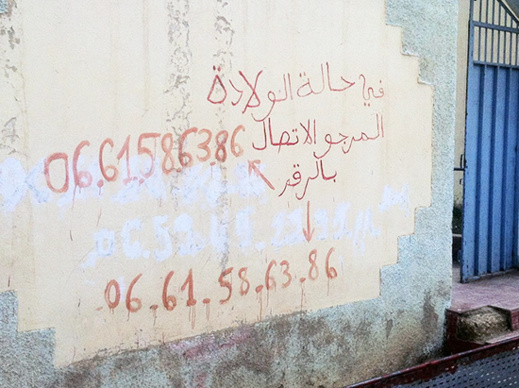 في حالة الولادة
المرجو الاتصال
بالرقم
06.61.58.63.86
06.61.58.63.86